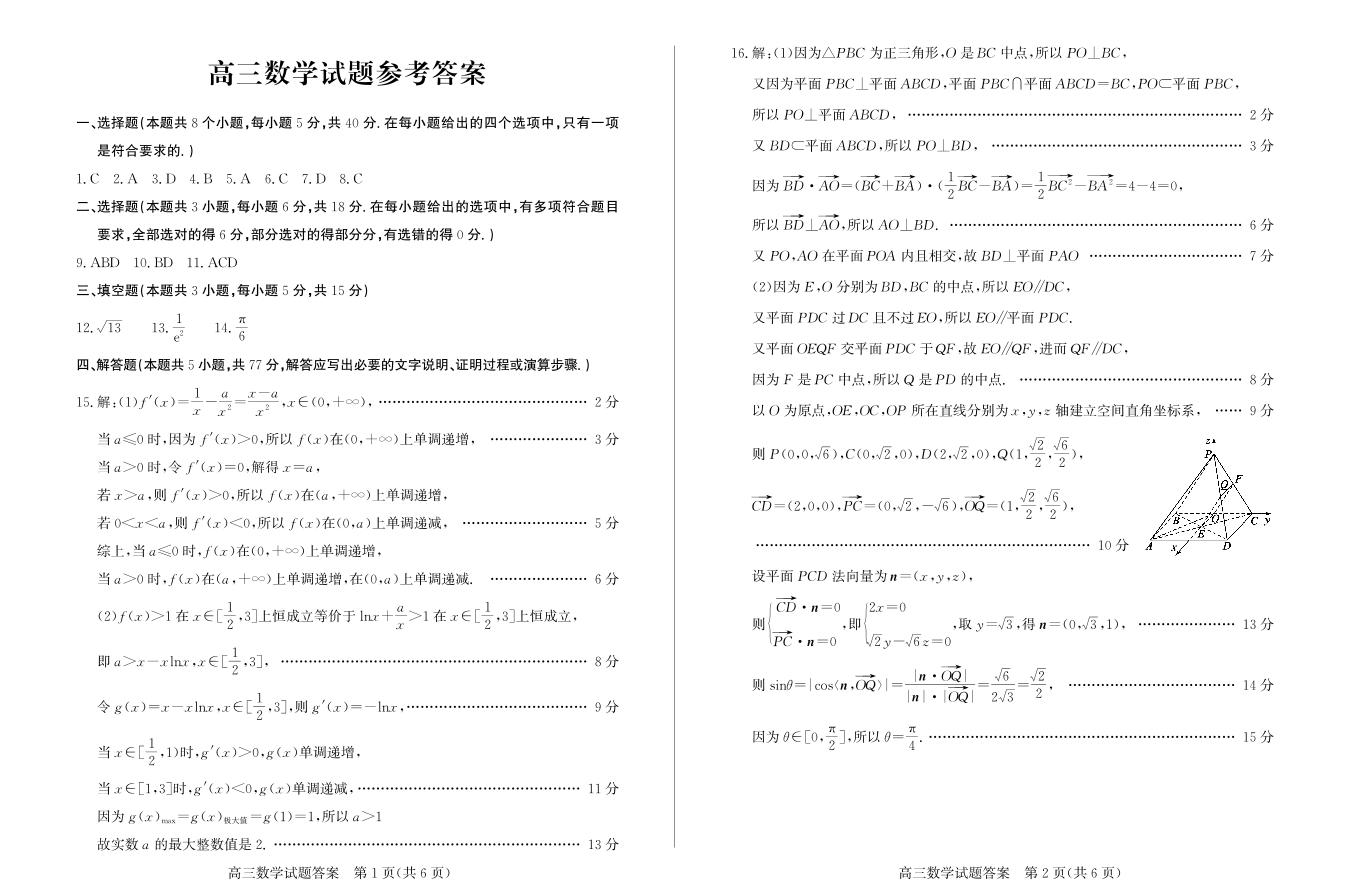 高三数学试题参考答案
一、选择题(本题共 8 个小题,每小题 5 分,共 40 分. 在每小题给出的四个选项中,只有一项
是符合要求的. )
1. C 2. A 3. D 4. B 5. A 6. C 7. D 8. C
二、选择题(本题共 3 小题,每小题 6 分,共 18 分. 在每小题给出的选项中,有多项符合题目
要求,全部选对的得 6 分,部分选对的得部分分,有选错的得 0 分. )
9. ABD 10. BD 11. ACD
三、填空题(本题共 3 小题,每小题 5 分,共 15 分)
12. √13 13. 1/e² 14. π/6
四、解答题(本题共 5 小题,共 77 分,解答应写出必要的文字说明、证明过程或演算步骤. )
15. 解:(1)f′(x)=1/x−a/x²=(x−a)/x²,x∈(0,+∞), …………………… 2 分
当 a⩽0 时,因为 f′(x)>0,所以 f(x)在(0,+∞)上单调递增, ………… 3 分
当 a>0 时,令 f′(x)=0,解得 x=a,
若 x>a,则 f′(x)>0,所以 f(x)在(a,+∞)上单调递增,
若 0<x<a,则 f′(x)<0,所以 f(x)在(0,a)上单调递减, ………… 5 分
综上,当 a⩽0 时,f(x)在(0,+∞)上单调递增,
当 a>0 时,f(x)在(a,+∞)上单调递增,在(0,a)上单调递减. ………… 6 分
(2)f(x)>1 在 x∈[1/2,3]上恒成立等价于 lnx+a/x>1 在 x∈[1/2,3]上恒成立,
即 a>x−xlnx,x∈[1/2,3], …………………… 8 分
令 g(x)=x−xlnx,x∈[1/2,3],则 g′(x)=−lnx,…………………… 9 分
当 x∈[1/2,1)时,g′(x)>0,g(x)单调递增,
当 x∈[1,3]时,g′(x)<0,g(x)单调递减,…………………… 11 分
因为 g(x)max=g(x)极大值=g(1)=1,所以 a>1
故实数 a 的最大整数值是 2. …………………… 13 分
高三数学试题答案 第 1 页(共 6 页)
16. 解:(1)因为△PBC 为正三角形,O 是 BC 中点,所以 PO⊥BC,
又因为平面 PBC⊥平面 ABCD,平面 PBC∩平面 ABCD=BC,PO⊂平面 PBC,
所以 PO⊥平面 ABCD, …………………… 2 分
又 BD⊂平面 ABCD,所以 PO⊥BD, …………………… 3 分
因为 BD→·AO→=(BC→+BA→)·(1/2 BC→−BA→)=1/2 BC→²−BA→²=4−4=0,
所以 BD→⊥AO→,所以 AO⊥BD. …………………… 6 分
又 PO,AO 在平面 POA 内且相交,故 BD⊥平面 PAO ………… 7 分
(2)因为 E,O 分别为 BD,BC 的中点,所以 EO∥DC,
又平面 PDC 过 DC 且不过 EO,所以 EO∥平面 PDC.
又平面 OEQF 交平面 PDC 于 QF,故 EO∥QF,进而 QF∥DC,
因为 F 是 PC 中点,所以 Q 是 PD 的中点. …………………… 8 分
以 O 为原点,OE,OC,OP 所在直线分别为 x,y,z 轴建立空间直角坐标系, …… 9 分
则 P(0,0,√6),C(0,√2,0),D(2,√2,0),Q(1,√2/2,√6/2),
CD→=(2,0,0),PC→=(0,√2,−√6),OQ→=(1,√2/2,√6/2),
…………………… 10 分
z
P
Q
F
B
O
C
y
E
A
x
D
设平面 PCD 法向量为 n=(x,y,z),
则{CD→·n=0 PC→·n=0,即{2x=0 √2y−√6z=0,取 y=√3,得 n=(0,√3,1), ………… 13 分
则 sinθ=|cos⟨n,OQ→⟩|=|n·OQ→|/(|n|·|OQ→|)=√6/(2√3)=√2/2, …………………… 14 分
因为 θ∈[0,π/2],所以 θ=π/4. …………………… 15 分
高三数学试题答案 第 2 页(共 6 页)